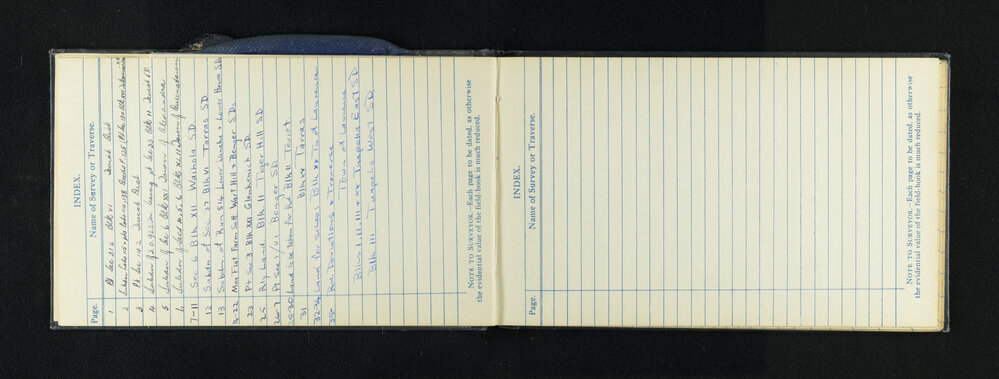 INDEX.
Page. Name of Survey or Traverse.
1 Pt Sec 31 a Blk VI
2
3 Pt Sec 142
4 Subdn of being pt Sec 33 Blk 11
5 Subdn of Sec 6 Blk XXI Town of Alexandra
6 Subdn of Secs 4, 5, 6 Blk XLII Town of Queenstown
7-11 Sec 6 Blk XII Waihola S.D.
12 Subdn of Sec 27 Blk VI Tarras S.D.
13 Subdn of Run 514 Lower Wanaka & Lower Hawea S.D.
14-22 Moa Flat Farm Sett. Wart Hill & Benger S.Ds.
23 Pt Sec 3 Blk XXI Glenkenich S.D.
25 Rly Land Blk II Tiger Hill S.D.
26-7 Pt Sec 1/VI Benger S.D.
28-30 Land to be taken for Rd Blk II Teviot
31 Blk XV Tarras
32-34 Land for School Blk XX Tn of Lawrence
35- Rd Deviations & Traverse
Town of Lawrence
Blks I, III & XX Tuapeka East S.D.
Blk III Tuapeka West S.D.
NOTE TO SURVEYOR.—Each page to be dated, as otherwise
the evidential value of the field-book is much reduced.
INDEX.
Page. Name of Survey or Traverse.
NOTE TO SURVEYOR.—Each page to be dated, as otherwise
the evidential value of the field-book is much reduced.